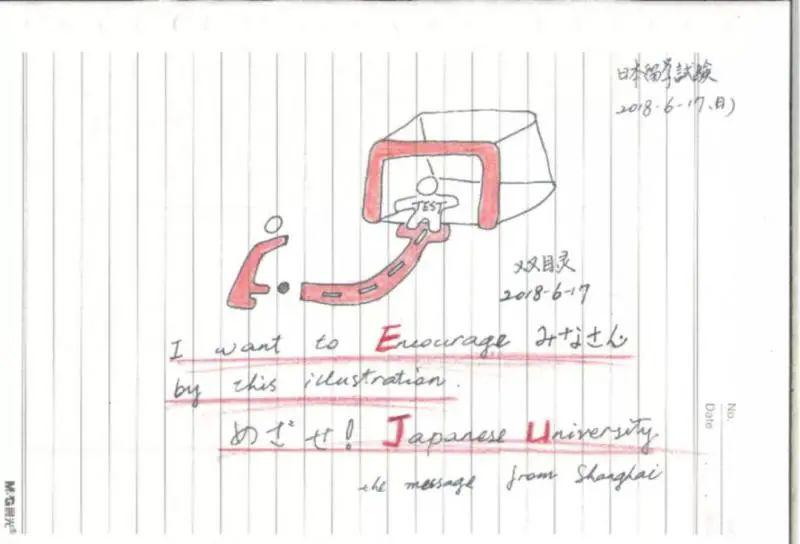 日本留学試験
2018-6-17(日)
TEST
2018-6-17
I want to Encourage みなさん
by this illustration.
めざせ! Japanese University
the message from Shanghai
No.
Date
M&G晨光®